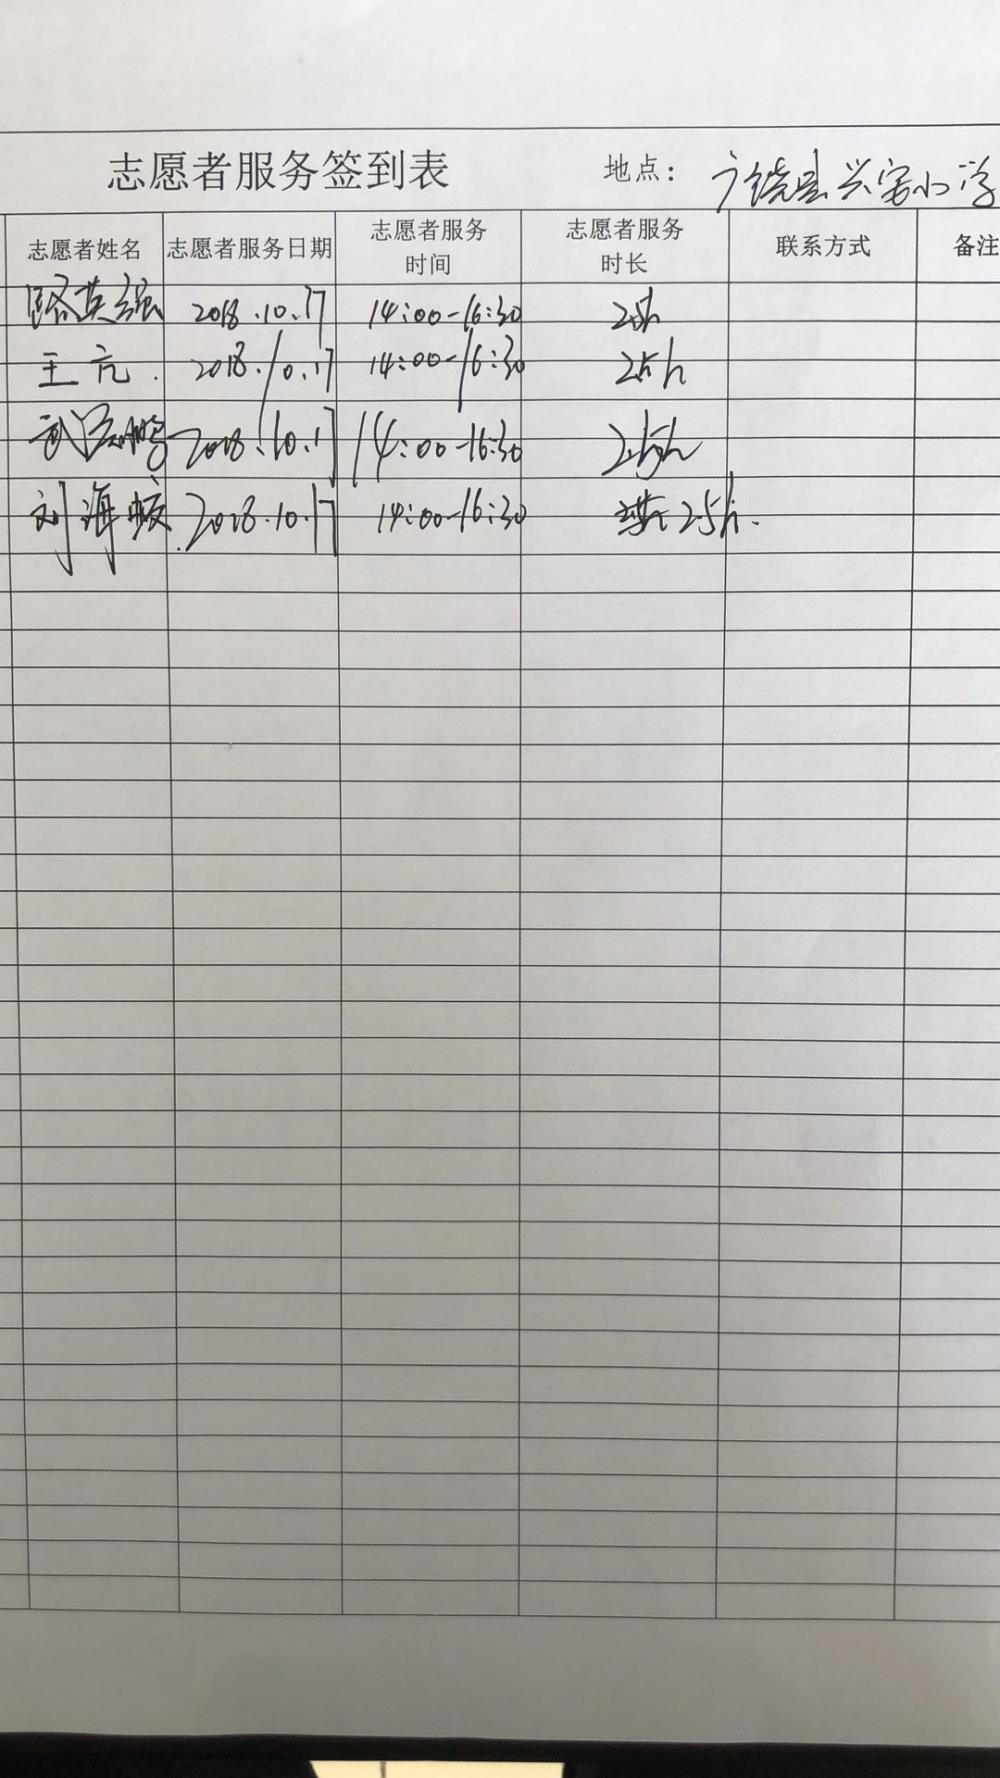 志愿者服务签到表 地点：广饶县兴安小学
志愿者姓名 志愿者服务日期 志愿者服务时间 志愿者服务时长 联系方式 备注
路英强 2018.10.17 14:00-16:30 2.5h
王亢 2018.10.17 14:00-16:30 2.5h
武 鹏 2018.10.17 14:00-16:30 2.5h
刘海 2018.10.17 14:00-16:30 2.5h.